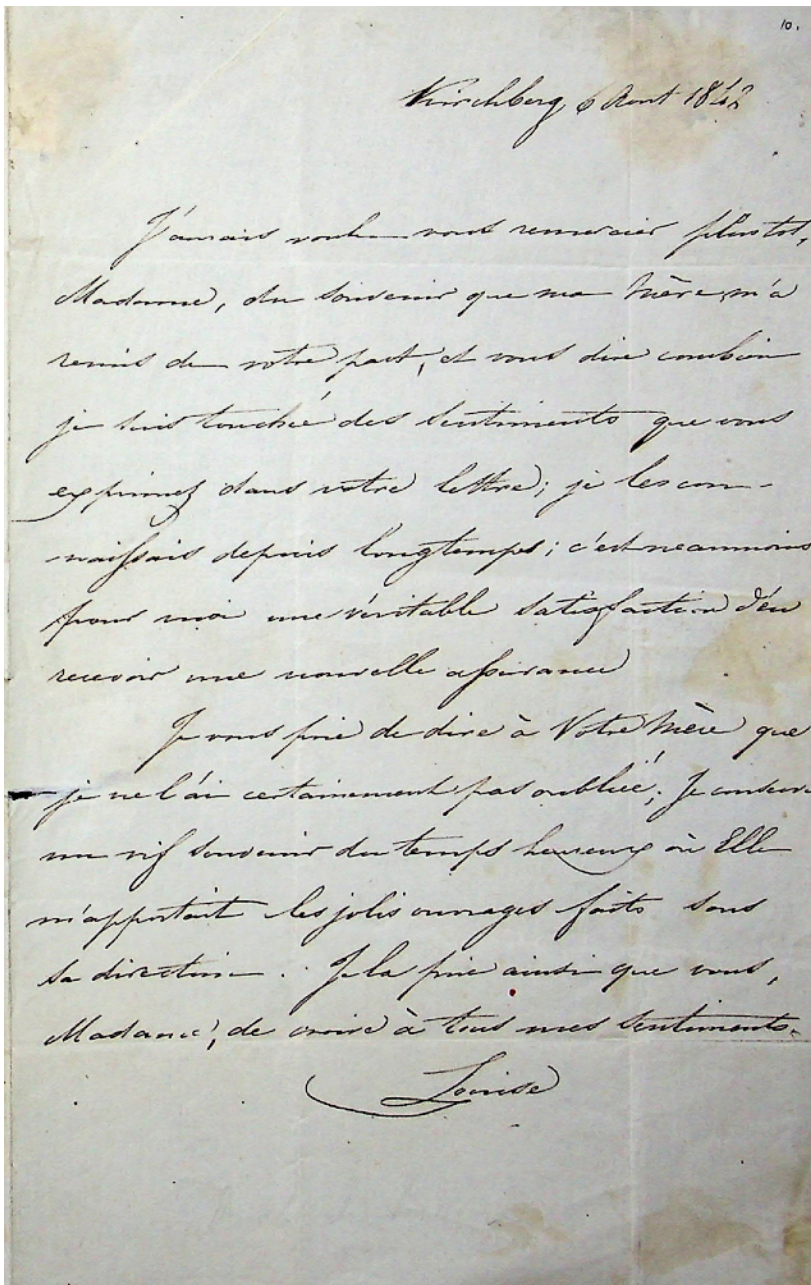 10.
Kirchberg 6 Aout 1842
J'aurais voulu vous remercier plustot,
Madame, du souvenir que ma Mère m'a
remis de votre part, et vous dire combien
je suis touchée des sentiments que vous
exprimez dans votre lettre; je les con-
naissais depuis longtemps; c'est neanmoins
pour moi une véritable satisfaction d'en
recevoir une nouvelle assurance
Je vous prie de dire à Votre Mère que
je ne l'ai certainement pas oubliée; Je conserve
un vif souvenir du temps heureux où Elle
m'apportait les jolis ouvrages faits sous
sa direction. Je la prie ainsi que vous,
Madame, de croire à tous mes sentiments.
Louise